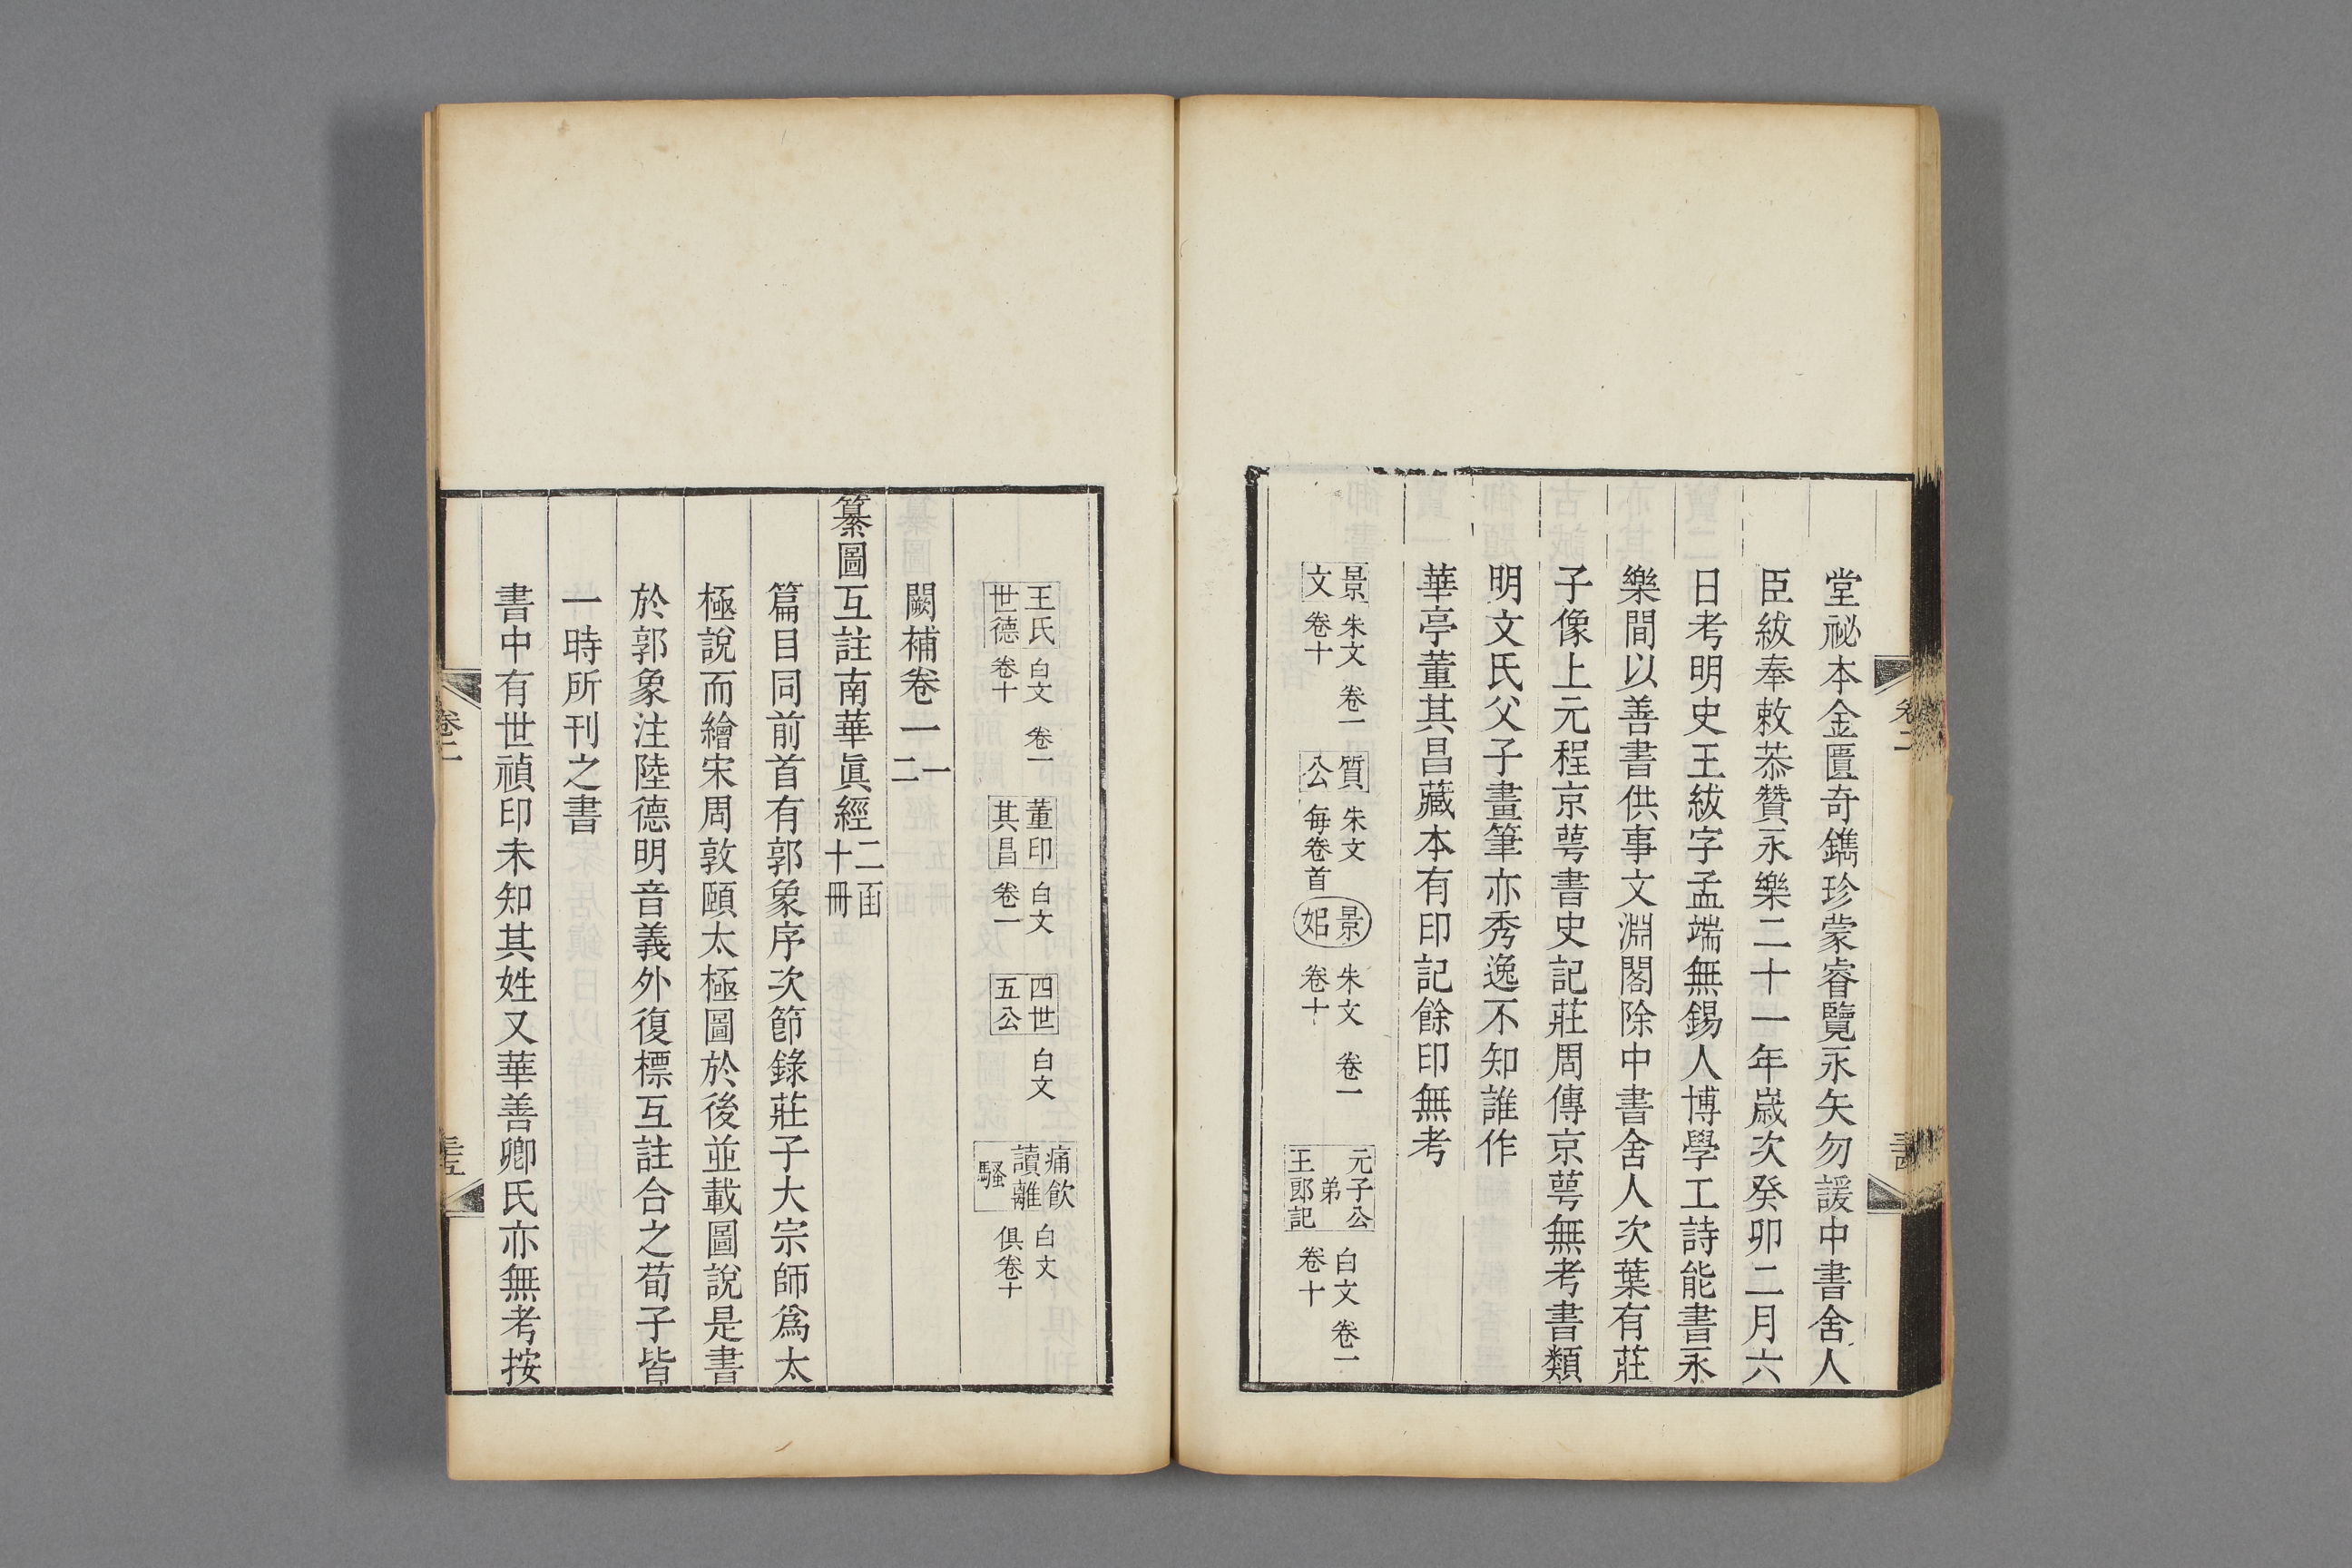 堂祕本金匱奇鐫珍蒙睿覽永矢勿諼中書舍人
臣紱奉敕恭贊永樂二十一年歲次癸卯二月六
日考明史王紱字孟端無錫人博學工詩能書永
樂間以善書供事文淵閣除中書舍人次葉有莊
子像上元程京萼書史記莊周傳京萼無考書類
明文氏父子畫筆亦秀逸不知誰作
華亭董其昌藏本有印記餘印無考
景文 朱文 卷一 卷十 質公 朱文 每卷首 景妮 朱文 卷一 卷十 元子公弟王郎記 白文 卷一 卷十
卷二
王氏世德 白文 卷一 卷十 董印其昌 白文 卷一 四世五公 白文 痛飲讀離騷 白文 俱卷十
闕補卷一 一 二
纂圖互註南華眞經 二函 十冊
篇目同前首有郭象序次節錄莊子大宗師爲太
極說而繪宋周敦頤太極圖於後並載圖說是書
於郭象注陸德明音義外復標互註合之荀子皆
一時所刊之書
書中有世禎印未知其姓又華善卿氏亦無考按
卷二